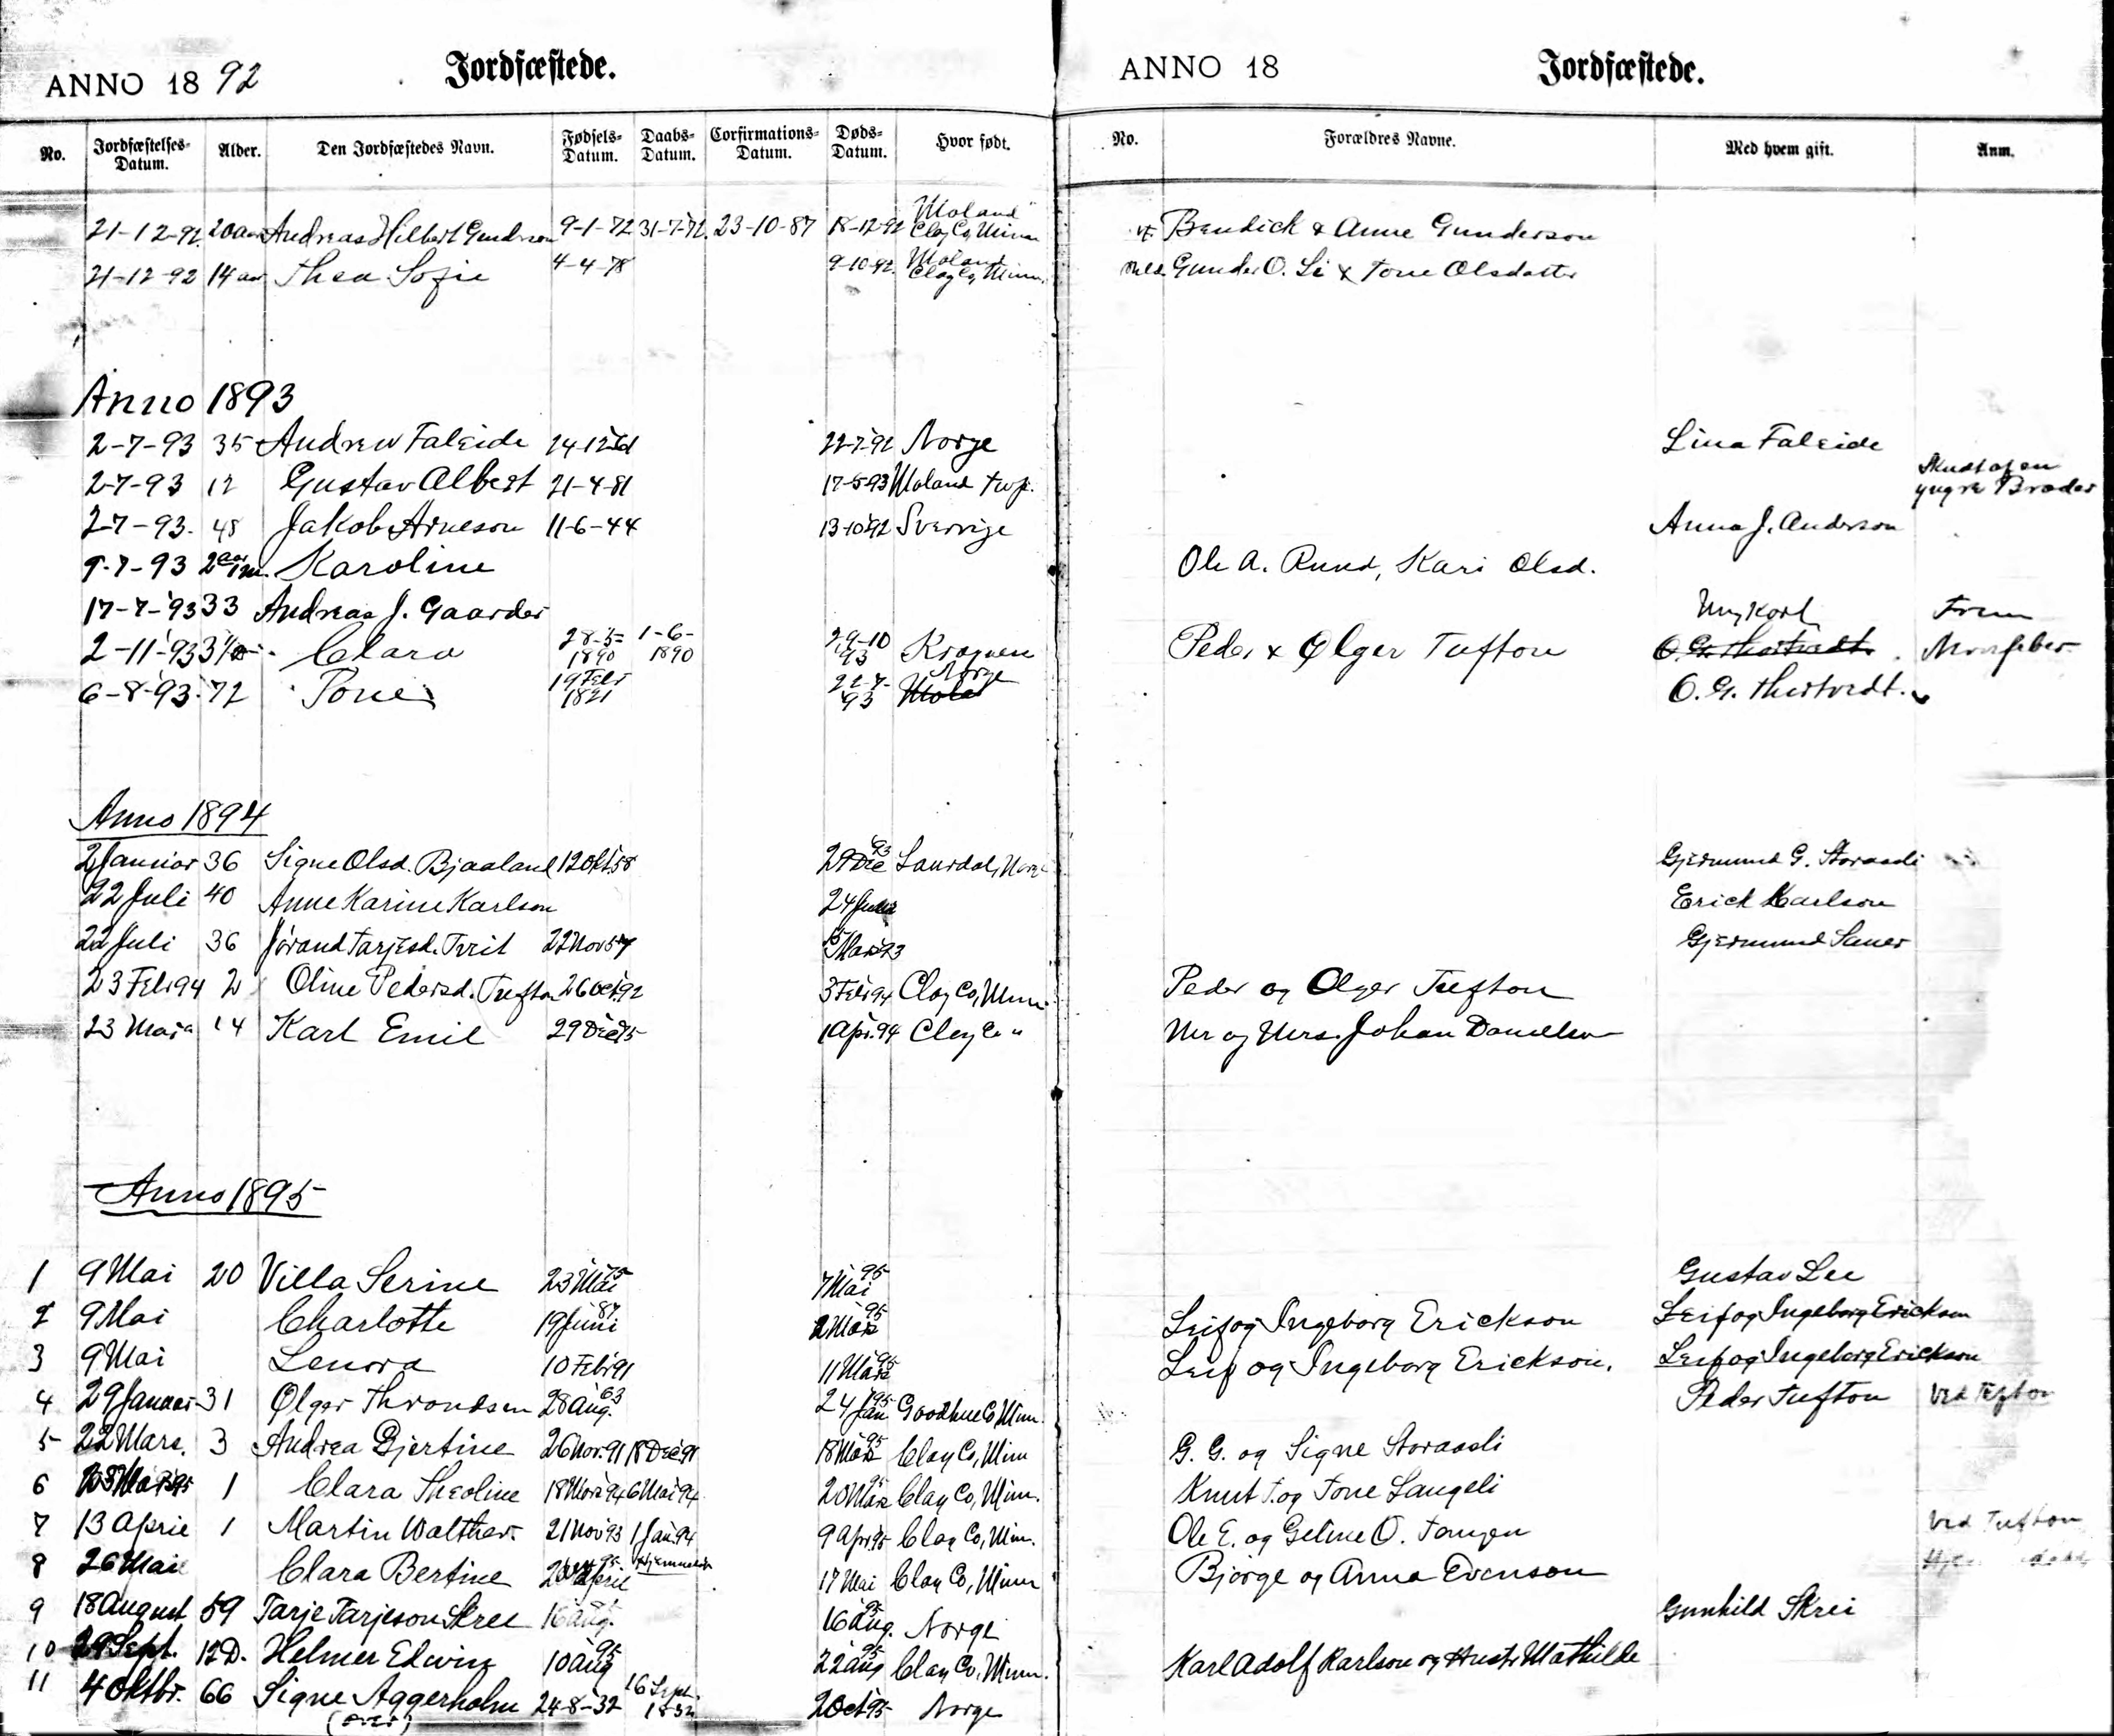 ANNO 18 92 Jordfæstede.
No. Jordfæstelses-Datum. Alder. Den Jordfæstedes Navn. Fødsels-Datum. Daabs-Datum. Corfirmations-Datum. Døds-Datum. Hvor født.
21-12-92 20 aar Andreas Hilbert Gundersen 9-1-72 31-7-72 23-10-87 18-12-92 Moland Clay Co, Minn
21-12-92 14 aar Thea Sofie 4-4-78 9-10-92 Moland Clay Co, Minn.
Anno 1893
2-7-93 35 Andrew Faleide 24-12 22-7-92 Norge
2-7-93 12 Gustav Albert 21-4-81 17-5-93 Moland twp.
2-7-93. 48 Jakob Arneson 11-6-44 13-10-92 Sverrige
9-7-93 2 aar 1 m. Karoline
17-7-'93 33 Andreas J. Gaarder
2-11-'93 Clara 28-5-1890 1-6-1890 29-10 93 Kragnes
6-8-'93. 72 Tone 19 Febr 1821 22-7-93 Norge
Anno 1894
2 Januar 36 Signe Olsd. Bjaaland 12 Okt. 58 29 Dec 93 Laurdal, Norge
22 Juli 40 Anne Karine Karlson 24 Juni
22 Juli 36 Jørand Tarjesd. Tveit 22 Nov 57 Mars 93
23 Febr 94 2 Oline Pedersd. Tufton 26 Oct. 92 3 Febr 94 Clay Co, Minn.
23 Mars 14 Karl Emil 29 Dec 1 Apr. 94 Clay Co "
Anno 1895
1 9 Mai 20 Villa Serine 23 Mai 75 7 Mai 95
2 9 Mai Charlotte 19 Juni 87 2 Mars 95
3 9 Mai Lenora 10 Febr 91 11 Mars 95
4 29 Januar 31 Olger Throndsen 28 Aug. 63 24 Jan 95 Goodhue Co Minn.
5 22 Mars. 3 Andrea Gjertine 26 Nov. 91 18 Dec 91 18 Mars 95 Clay Co, Minn
6 1 Clara Theoline 18 Mars 94 6 Mai 94 20 Mars 95 Clay Co, Minn.
7 13 April 1 Martin Walther. 21 Nov 93 1 Jan. 94 9 Apr. 95 Clay Co, Minn.
8 26 Mai Clara Bertine April 95 Hjemmedøbt 17 Mai Clay Co, Minn
9 18 August 59 Tarje Tarjeson Skree 16 Aug. 16 Aug. 95 Norge
10 29 Sept. 12 D. Helmer Edwin 10 Aug 95 22 Aug 95 Clay Co, Minn.
11 4 Oktbr. 66 Signe Aggerholm 24-8-32 16 Sept. 1832 2 Oct 95 Norge
(over)
ANNO 18 Jordfæstede.
No. Forældres Navne. Med hvem gift. Anm.
Bendick & Anne Gunderson
Gunder O. Li & Tone Olsdatter
Lina Faleide
Skudt af en yngre Broder
Anna J. Anderson
Ole A. Rund, Kari Olsd.
Ung Karl
Peder & Olger Tufton O. G. Thortvedt.
O. G. Thortvedt.
Gjermund G. Storaasli
Erick Karlson
Gjermund Sauer
Peder og Olger Tufton
Mr og Mrs. Johan Danielson
Gustav Lee
Leif og Ingeborg Erickson Leif og Ingeborg Erickson
Leif og Ingeborg Erickson. Leif og Ingeborg Erickson
Peder Tufton Ved Tufton
G. G. og Signe Storaasli
Knut T. og Tone Langeli
Ole E. og Geline O. Tangen Ved Tufton
Bjørge og Anna Evenson
Gunhild Skrei
Karl Adolf Karlson og Hustr Mathilde